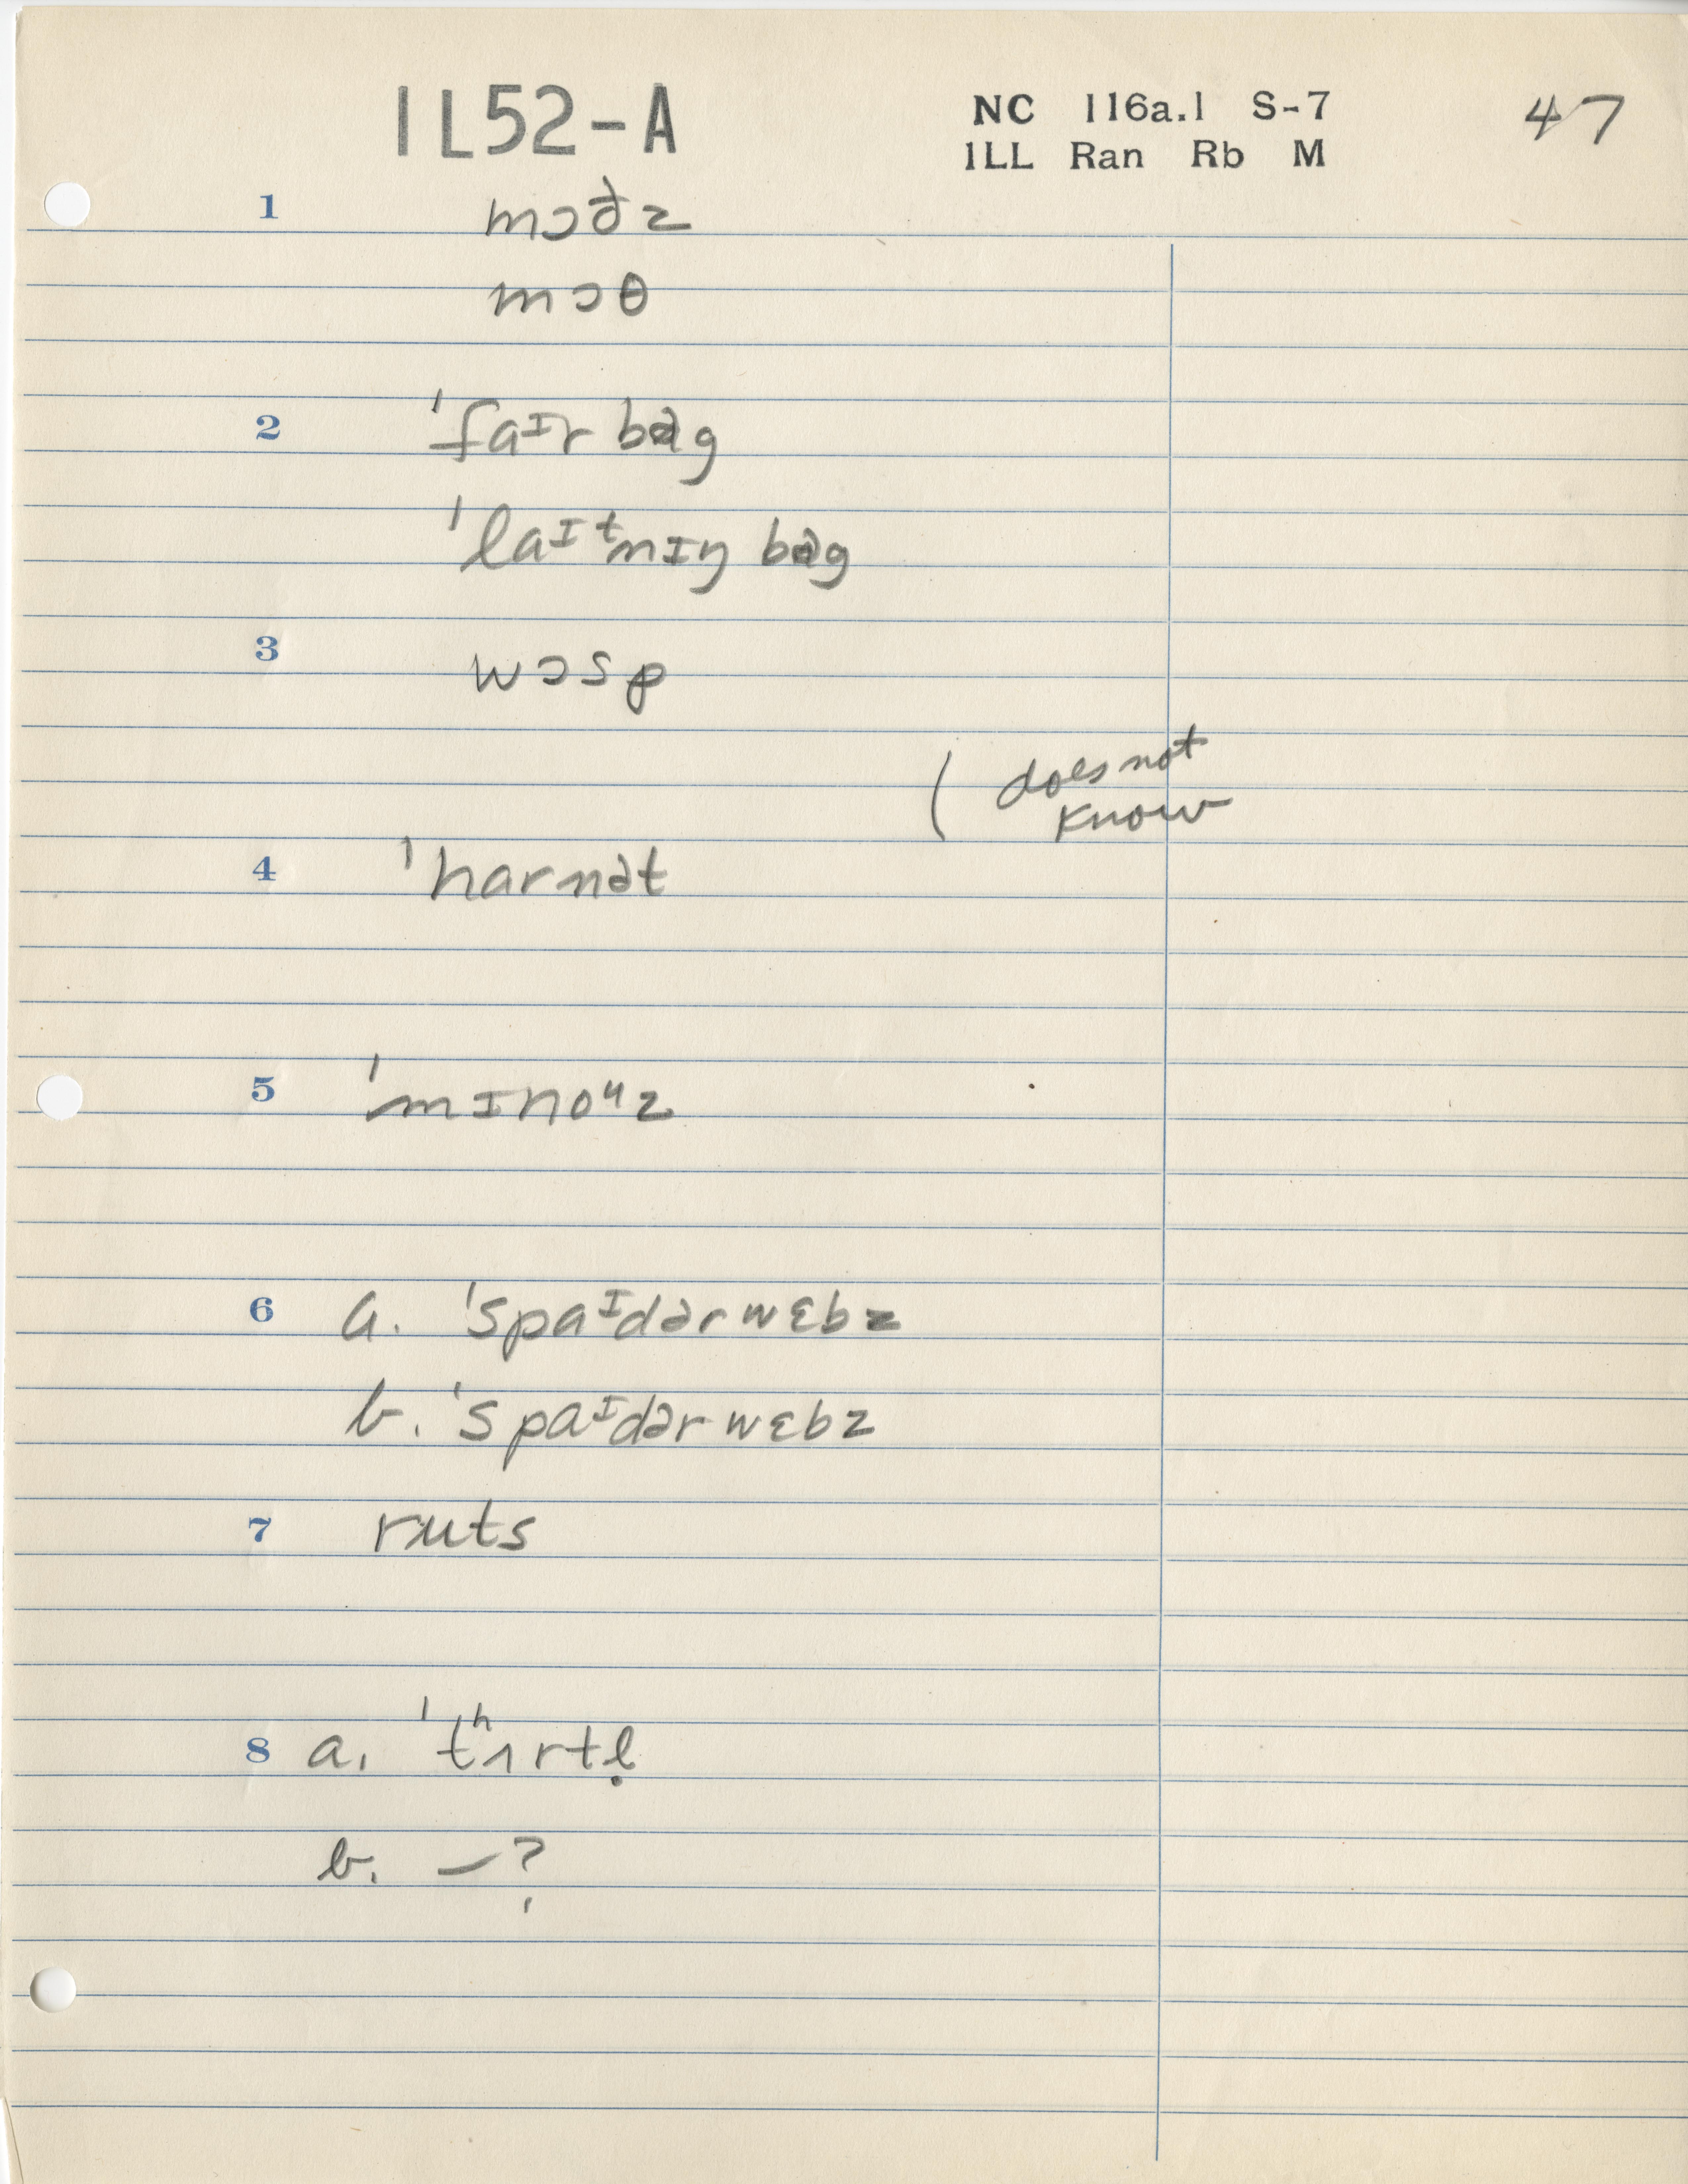 1L52-A
NC 116a.1 S-7
ILL Ran Rb M
47
1 mɔðz
mɔθ
2 ˈfaᴵr bəg
ˈlaᴵᵗnɪŋ bəg
3 wɔsp
( does not
know
4 ˈharnət
5 ˈmɪnoᵘz
6 a. ˈspaᴵdərwɛbz
b. ˈspaᴵdərwɛbz
7 ruts
8 a. ˈtʰʌrtl̩
b. —?